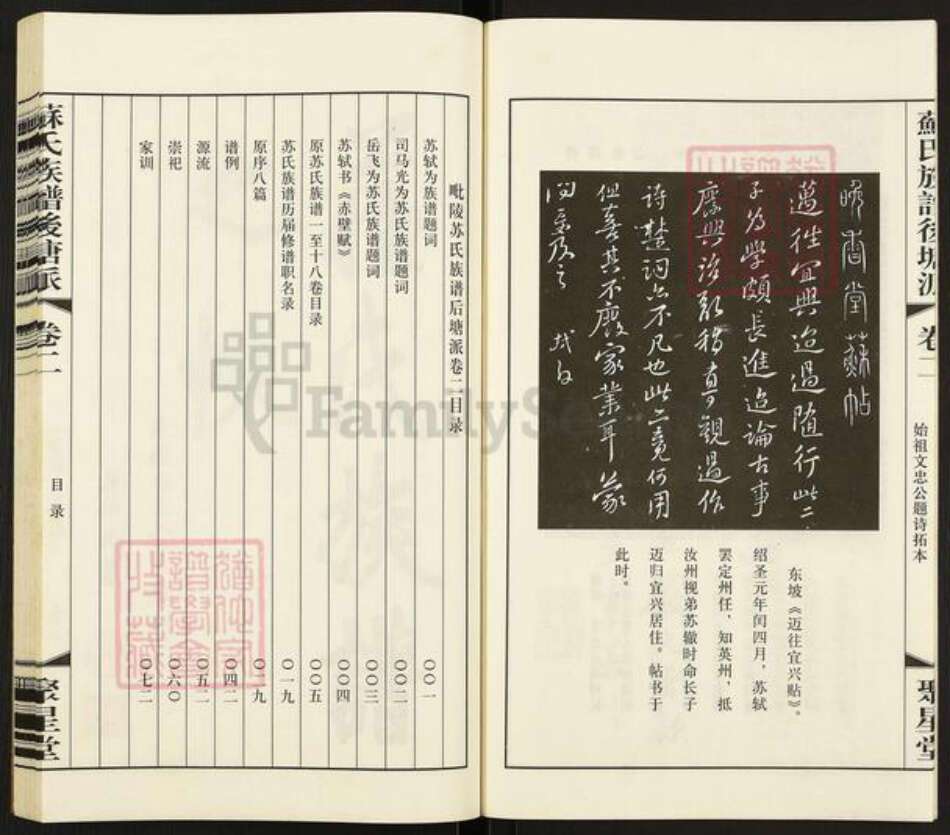 蘇氏族譜後塘派
卷二
始祖文忠公题诗拓本
聚星堂
晚香堂蘇帖
邁往宜興迨過隨行此二
子為學頗長進迨論古事
廢興治亂稍有可觀過作
詩楚詞亦不凡也此二竟何用
但喜其不廢家業耳蒙
問多及之 軾白
东坡《迈往宜兴贴》。
绍圣元年闰四月，苏轼
罢定州任，知英州，抵
汝州视弟苏辙时命长子
迈归宜兴居住。帖书于
此时。
毗陵苏氏族谱后塘派卷二目录
苏轼为族谱题词 〇〇一
司马光为苏氏族谱题词 〇〇二
岳飞为苏氏族谱题词 〇〇三
苏轼书《赤壁赋》 〇〇四
原苏氏族谱一至十八卷目录 〇〇五
苏氏族谱历届修谱职名录 〇一九
原序八篇
谱例 〇四二
源流 〇五二
崇祀 〇六〇
家训 〇七二
蘇氏族譜後塘派
卷二
目录
聚星堂
FamilySe